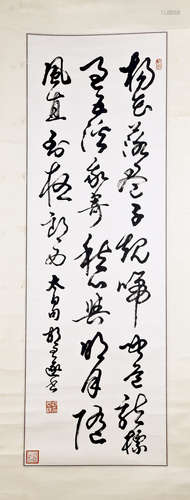 楊花落盡子規啼聞道龍標
過五溪我寄愁心與明月隨
風直到夜郎西 太白句